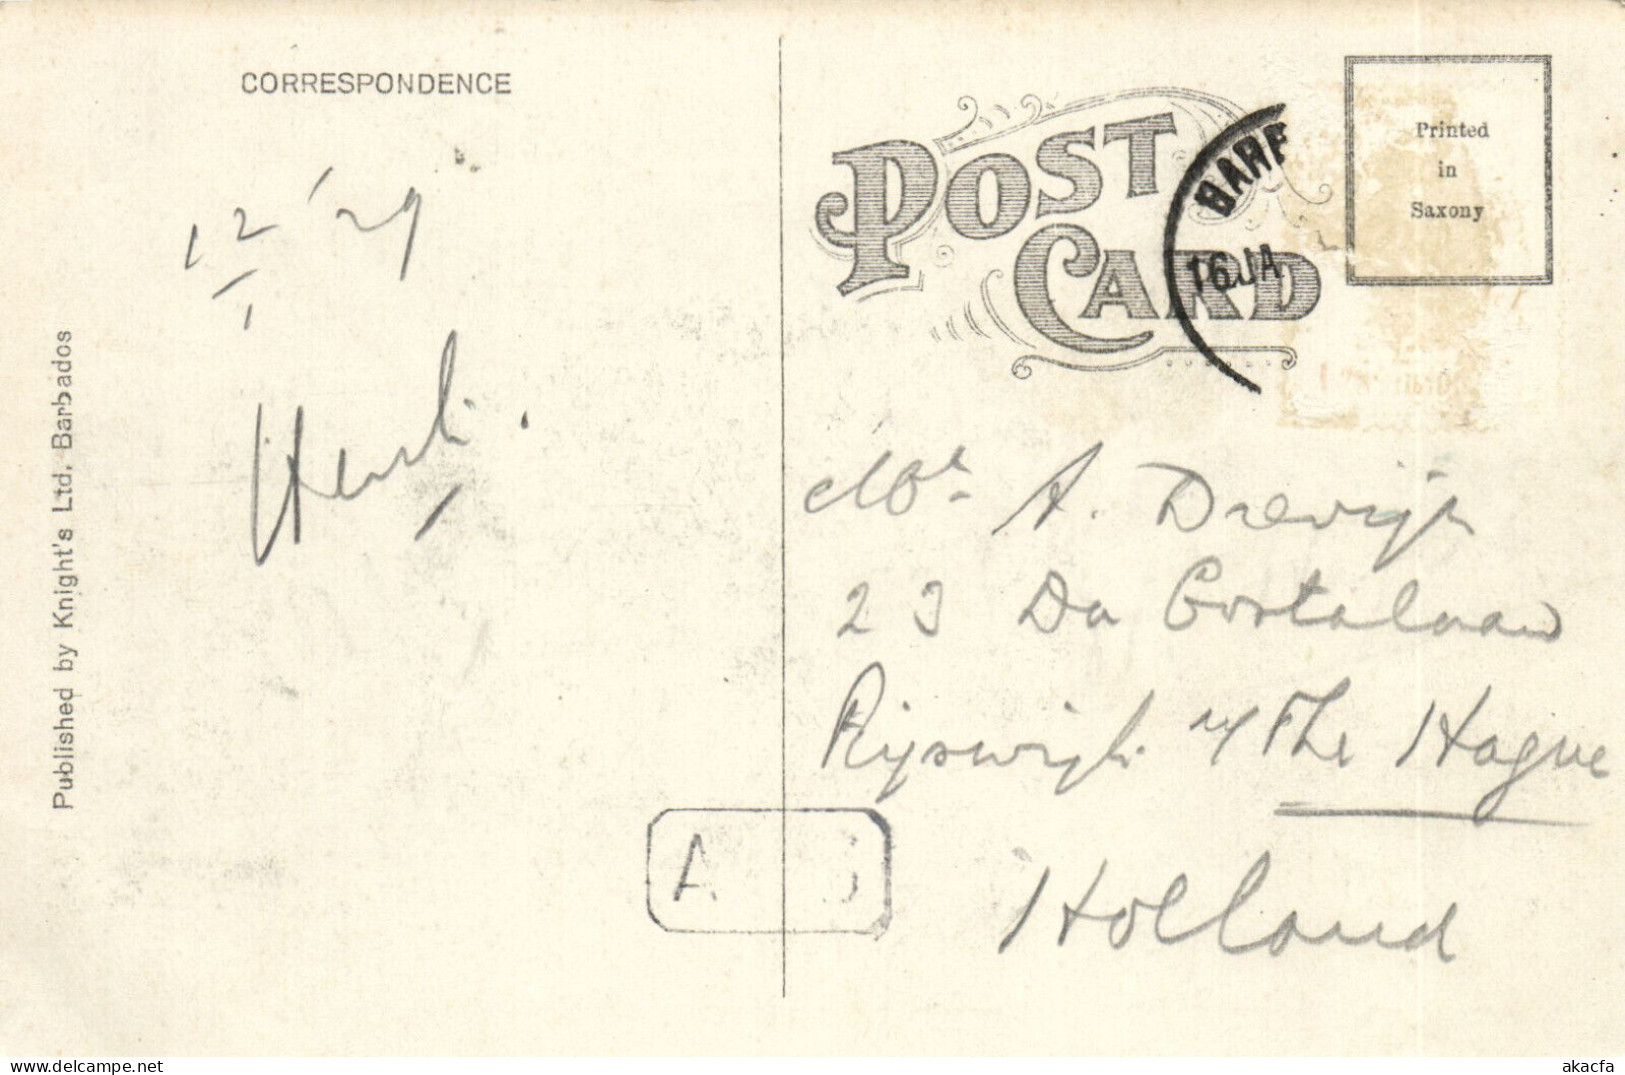 CORRESPONDENCE
12/1 '29
Published by Knight's Ltd, Barbados
POST CARD
BARB
16 JA
Printed
in
Saxony
A. Drevijn
23 Da Costalaan
Rijswijk n/ The Hague
Holland
A
akacfa